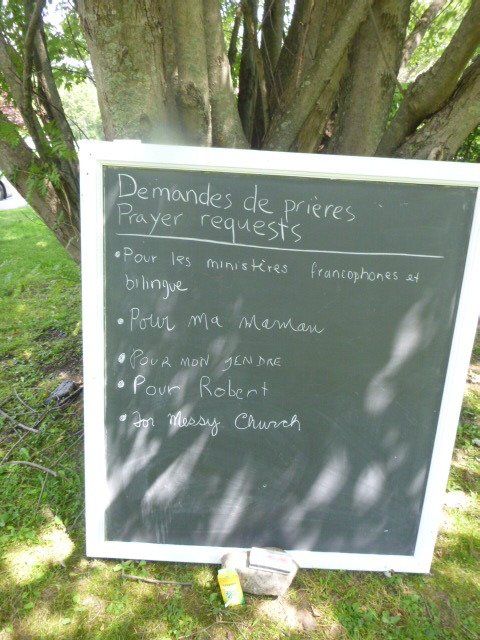 Demandes de prières
Prayer requests
• Pour les ministères francophones et
bilingue
• Pour ma maman
• POUR MON JENDRE
• Pour Robert
• For Messy Church